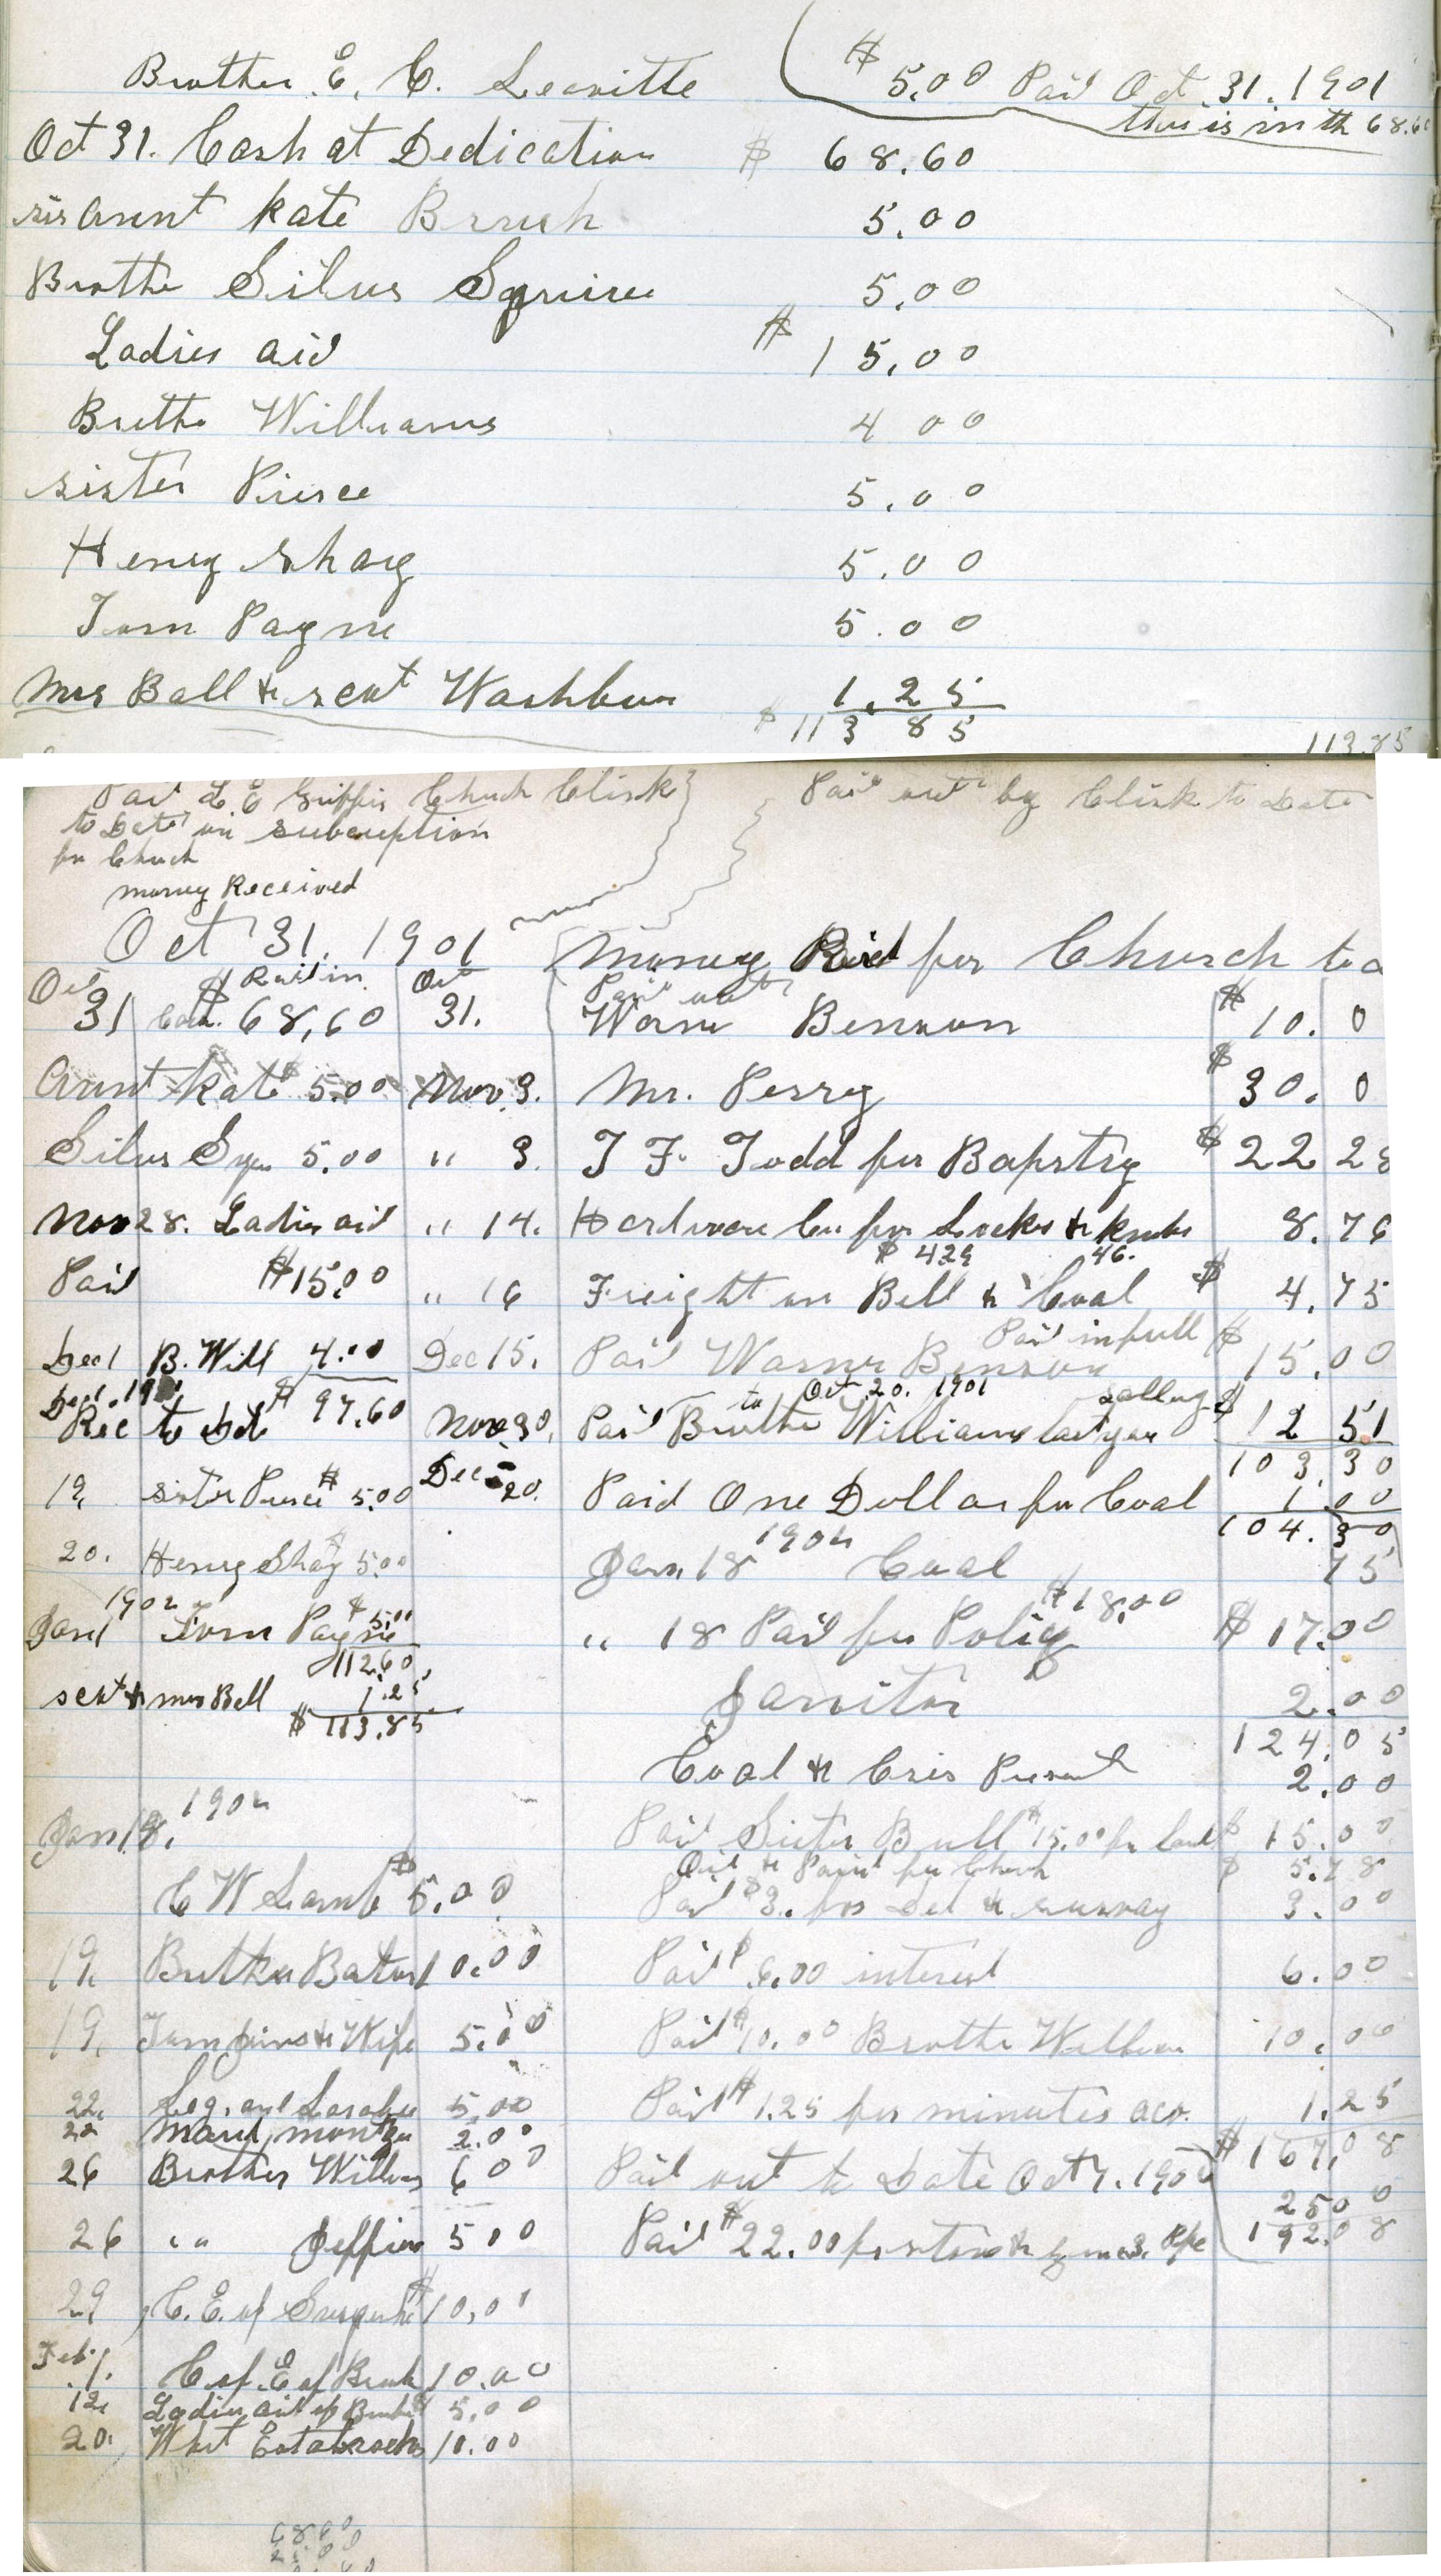 Brother E. C. Leavitte $5.00 Paid Oct 31. 1901
this is in th 68.60
Oct 31. Cash at Dedication $ 68.60
sis aunt Kate Brush 5.00
Brothe Silus Squires 5.00
Ladies aid $ 15.00
Brothe Williams 4 00
sister Pierce 5.00
Henry Shay 5.00
Tom Payne 5.00
Mrs Ball & sent Washburn 1.25
$ 113 85 113.85
Paid L E Griffis Church Clirk
to Date on subcruption
for Church
money Received
Paid out by Clirk to Date
Oct 31. 1901 Money Paid for Church
Oct $ Paid in Oct Paid out
31 Cash 68,60 31. Warner Benson $ 10. 0
Aunt Kate $ 5.00 Nov 3. Mr. Perry $ 30. 0
Silus Sqr 5.00 " 3. T F. Todd for Baptstry $ 22 28
Nov 28. Ladies aid " 14. Hardware Co for Locks & knobs 8.76
$ 429 46.
Paid $15.00 " 16 Freight on Bell & Coal $ 4.75
Dec 1 B. Will 4.00 Dec 15. Paid Warner Benson Paid in full $ 15.00
Dec 1. 1901 to Oct 20. 1901
Rec to Date $ 97.60 Nov 30. Paid Brothe Williams last year $ 12 51
103.30
19, sister Pierce $ 5.00 Dec 20. Paid One Dollar for Coal 1.00
104.30
20. Henry Shay 5.00 Jan. 18 1902 Coal 75
1902 $18.00
Jan 1 Tom Payne $5.00 " 18 Paid for Policy $ 17.00
112.60
sent & mrs Ball 1.25 Janitor 2.00
$ 113.85 124.05
Coal & Cris Present 2.00
Jan 18. 1902 Paid Sister Bull $15.00 for Land $ 15.00
Oil & Paint for Church $ 5.78
C W Lamb $ 5.00 Paid $3. for Ded & survay 3.00
19. Brother Bates 10.00 Paid $6.00 interest 6.00
19. & Wife 5.00 Paid $10.00 Brothe William 10.00
22. 5.00 Paid $1.25 for minutes 1.25
22 2.00 $ 167.08
26 Brother Williams 6 00 Paid out to Date Oct 7. 1902
25 0 0
26 " " Jeffins 5 00 Paid $22.00 for stove & 192.08
29 C. E. of $10.00
Feb 1. C. of E of Brook 10.00
12, Ladies aid of 5.00
20. Whit Estabrooks 10.00
68.60